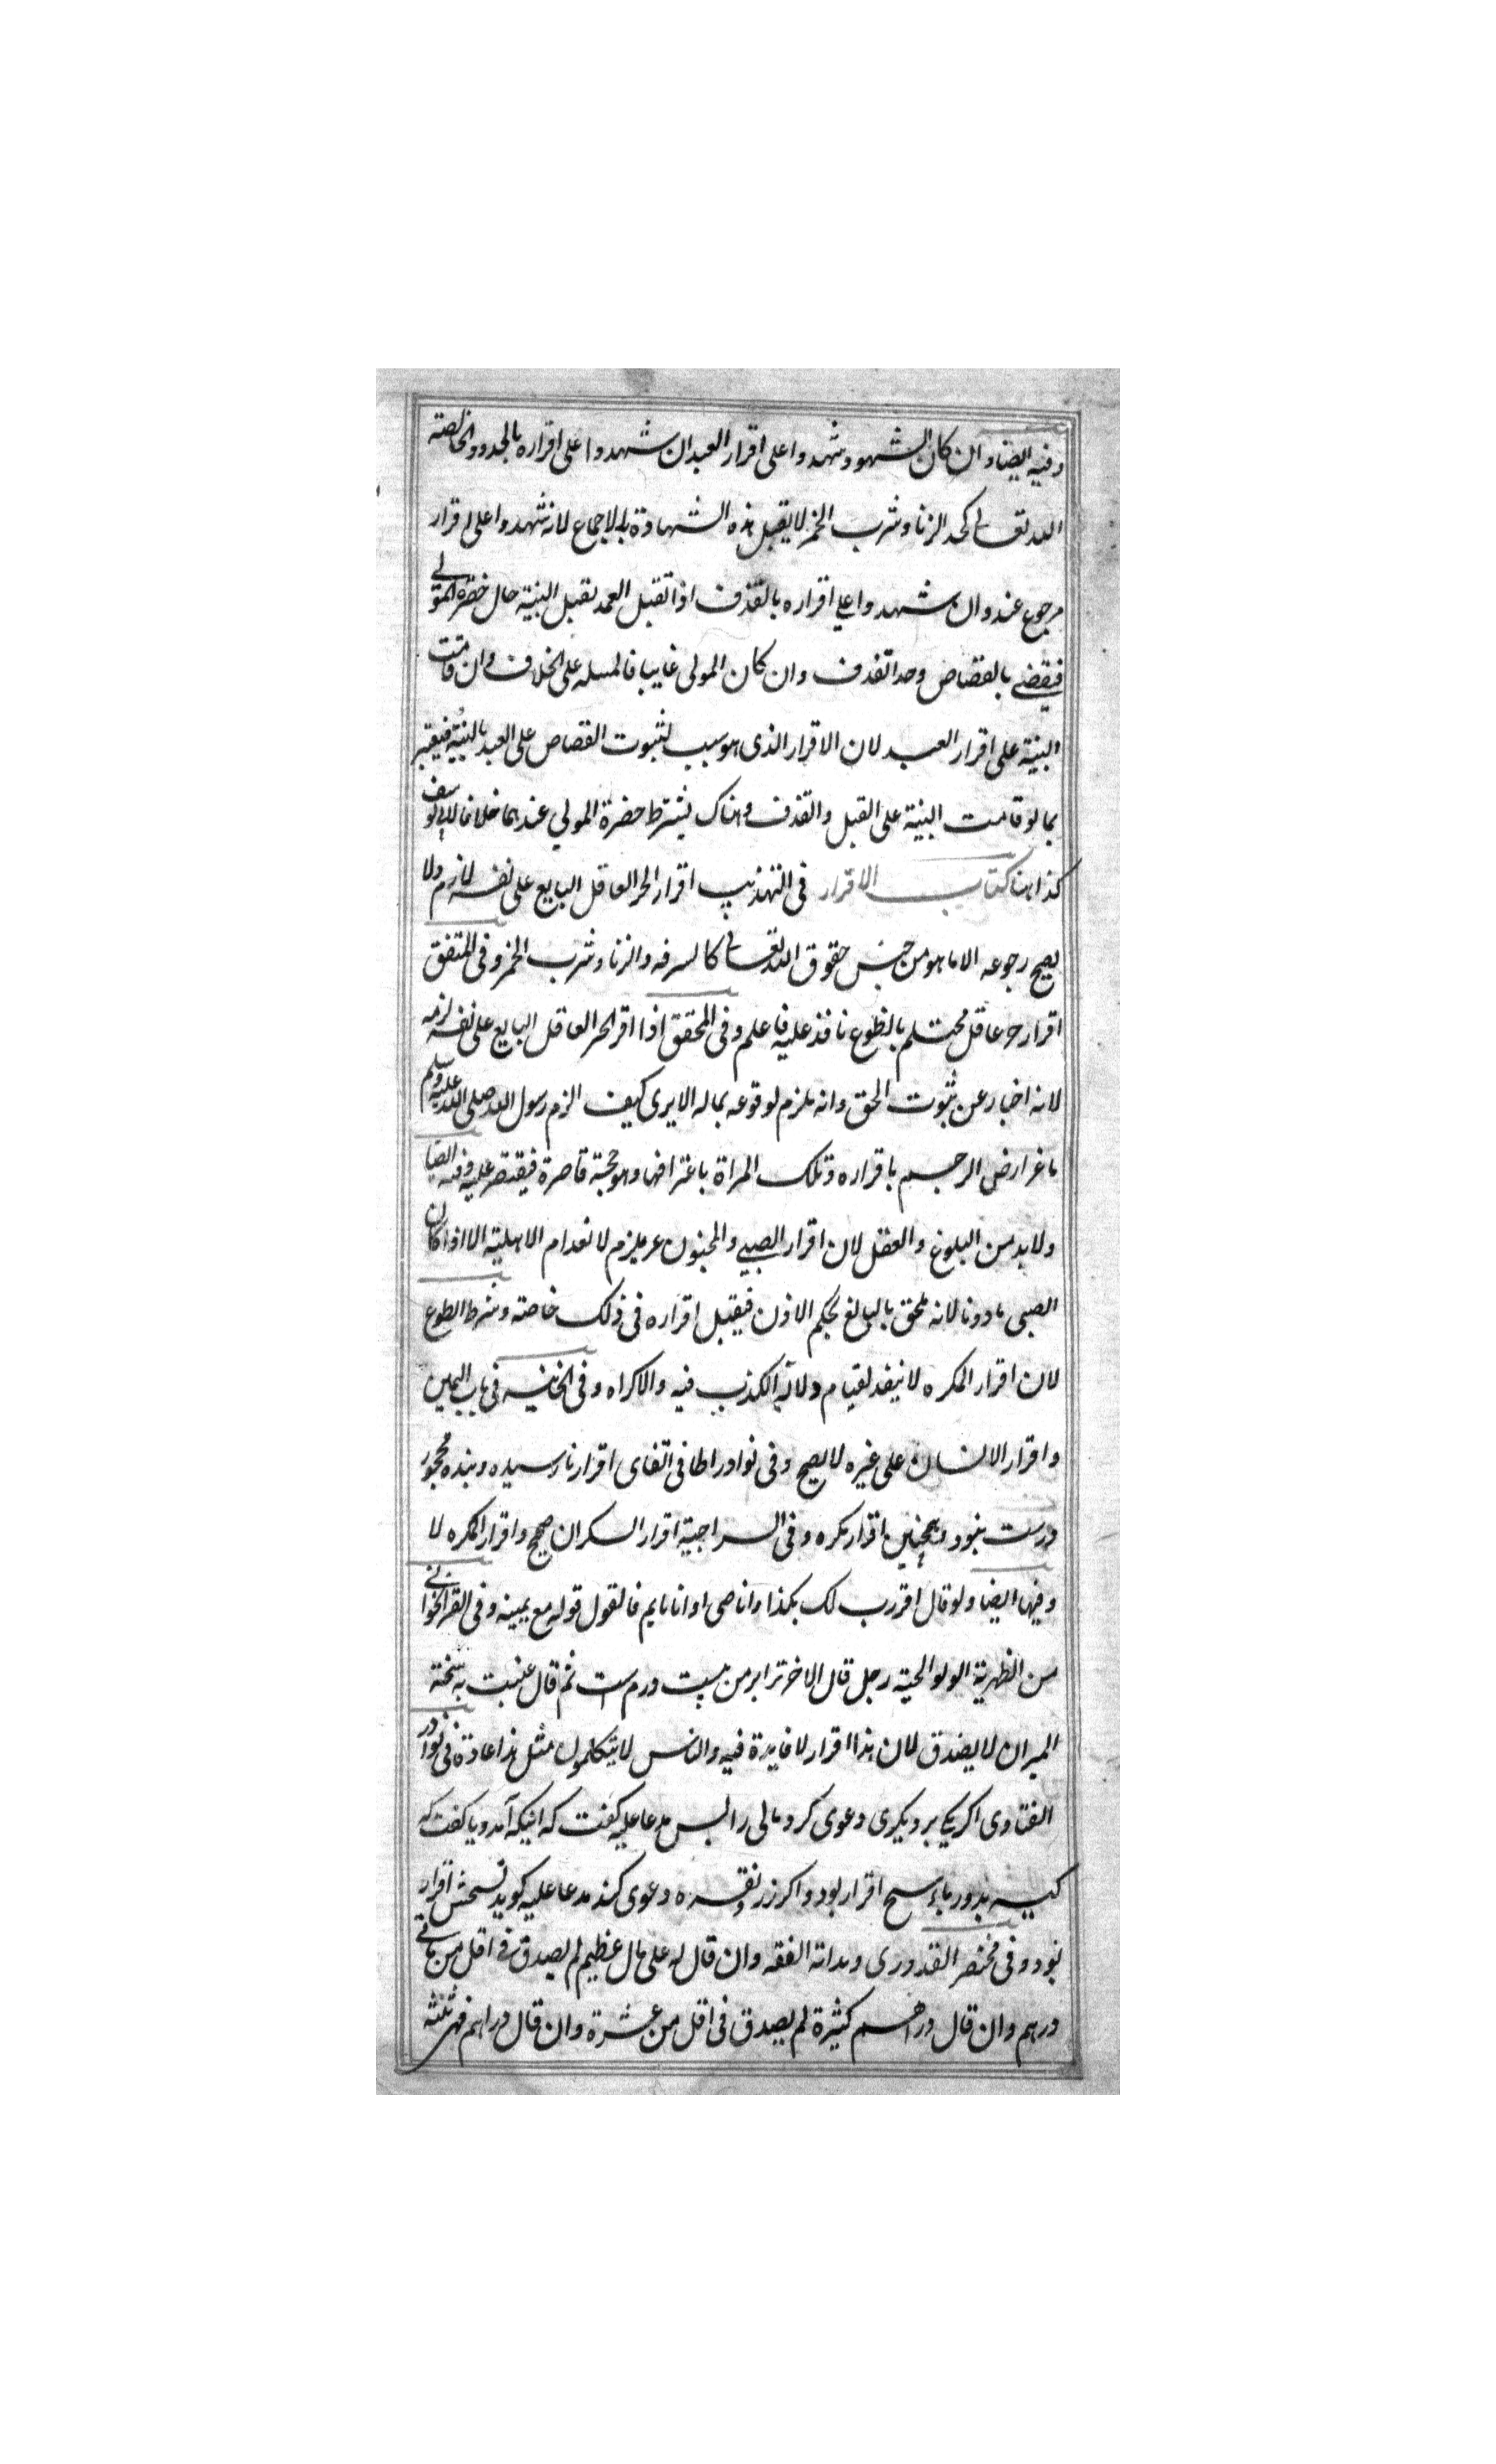 وفيه ايضا وان كان الشهود شهدوا على اقرار العبد ان شهدوا على اقراره بالحدود الخالصة
الله تعالى كحد الزنا وشرب الخمر لا يقبل هذه الشهادة بالاجماع لانه شهدوا على اقرار
مرجوع عنه وان شهدوا على اقراره بالقذف اذا تقبل العمد تقبل البنية حال حضرة المولى
فيقضى بالقصاص وحد القذف وان كان المولى غايبا فالمسله على الخلاف وان قامت
البنية على اقرار العبد لان الاقرار الذى هو سبب لثبوت القصاص على العبد بالبنية فيعتبر
بما لو قامت البنية على القبل والقذف وهناك يشترط حضرة المولى عندهما خلافا لابى يوسف
كذا هنا كتاب الاقرار فى التهذيب اقرار الحر العاقل البايع على نفسه لازم ولا
يصح رجوعه الا ما هو من جنس حقوق الله تعالى كالسرقه والزنا وشرب الخمر وفى المتفق
اقرار حر عاقل محتلم بالطوع نافذ عليه فاعلم وفى المحقق اذا اقر الحر العاقل البايع على نفسه لزمه
لانه اخبار عن ثبوت الحق وانه ملزم لوقوعه بماله الا يرى كيف الزم رسول الله صلى الله عليه وسلم
ماعزا رض الرجم باقراره وتلك المراة باعترافها وهو حجة قاصرة فيقتصر عليه وفيه ايضا
ولا بد من البلوغ والعقل لان اقرار الصبى والمجنون غير ملزم لانعدام الاهلية الا اذا كان
الصبى ماذونا لانه ملحق بالبالغ بحكم الاذن فيقبل اقراره فى ذلك خاصته وشرط الطوع
لان اقرار المكره لا ينفذ لقيام دلالة الكذب فيه والاكراه وفى الخانيه فى باب اليمين
واقرار الانسان على غيره لا يصح وفى نوادر اطافى اتفاى اقرار نارسيده وبنده محجور
درست نبود وهمچنين اقرار مكره وفى السراجية اقرار السكران صحيح واقرار المكره لا
وفيها ايضا ولو قال اقررت لك بكذا وانا صبى او انا نايم فالقول قوله مع يمينه وفى القراخوانى
من الظهرية الولوالجية رجل قال الاخر ترا بر من بيست درم است ثم قال عنيت به سخته
الميزان لا يصدق لان هذا اقرار لا فايدة فيه والناس لا يتكلمون مثل هذا عادة فى نوادر
الفتاوى اكر يكى بر ديكرى دعوى كرد مالى را پس مدعا عليه كفت كه اينكه آمد ويا كفت كه
كيسه بدوز پاسخ اقرار بود واكر زر ونقره دعوى كند مدعا عليه كويد بسختش اقرار
نبود وفى مختصر القدورى وبداته الفقه وان قال له على مال عظيم لم يصدق فى اقل من مائتى
درهم وان قال دراهم كثيرة لم يصدق فى اقل من عشرة وان قال دراهم فهى ثلثة